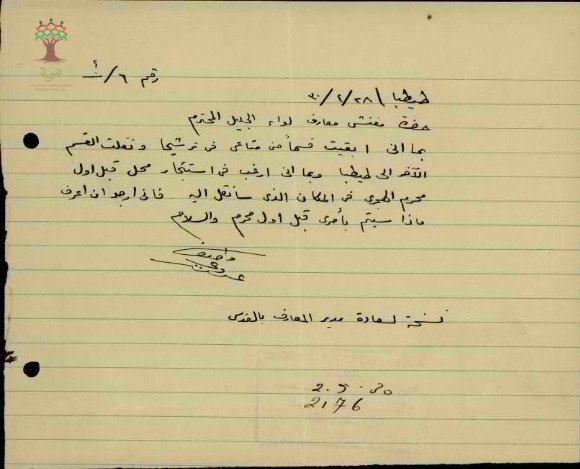 رقم ٦/أ
طيطبا ٢٨/٢/٣٠
حضرة مفتش معارف لواء الجليل المحترم
بما اني ابقيت قسماً من متاعي في ترشيحا ونقلت القسم
الآخر الى طيطبا وبما اني ارغب في استئجار محل قبل اول
محرم الهجري في المكان الذي سأنقل اليه فاني ارجو ان اعرف
ماذا سيتم بأمري قبل اول محرم والسلام
نسخة لسعادة مدير المعارف بالقدس
2176